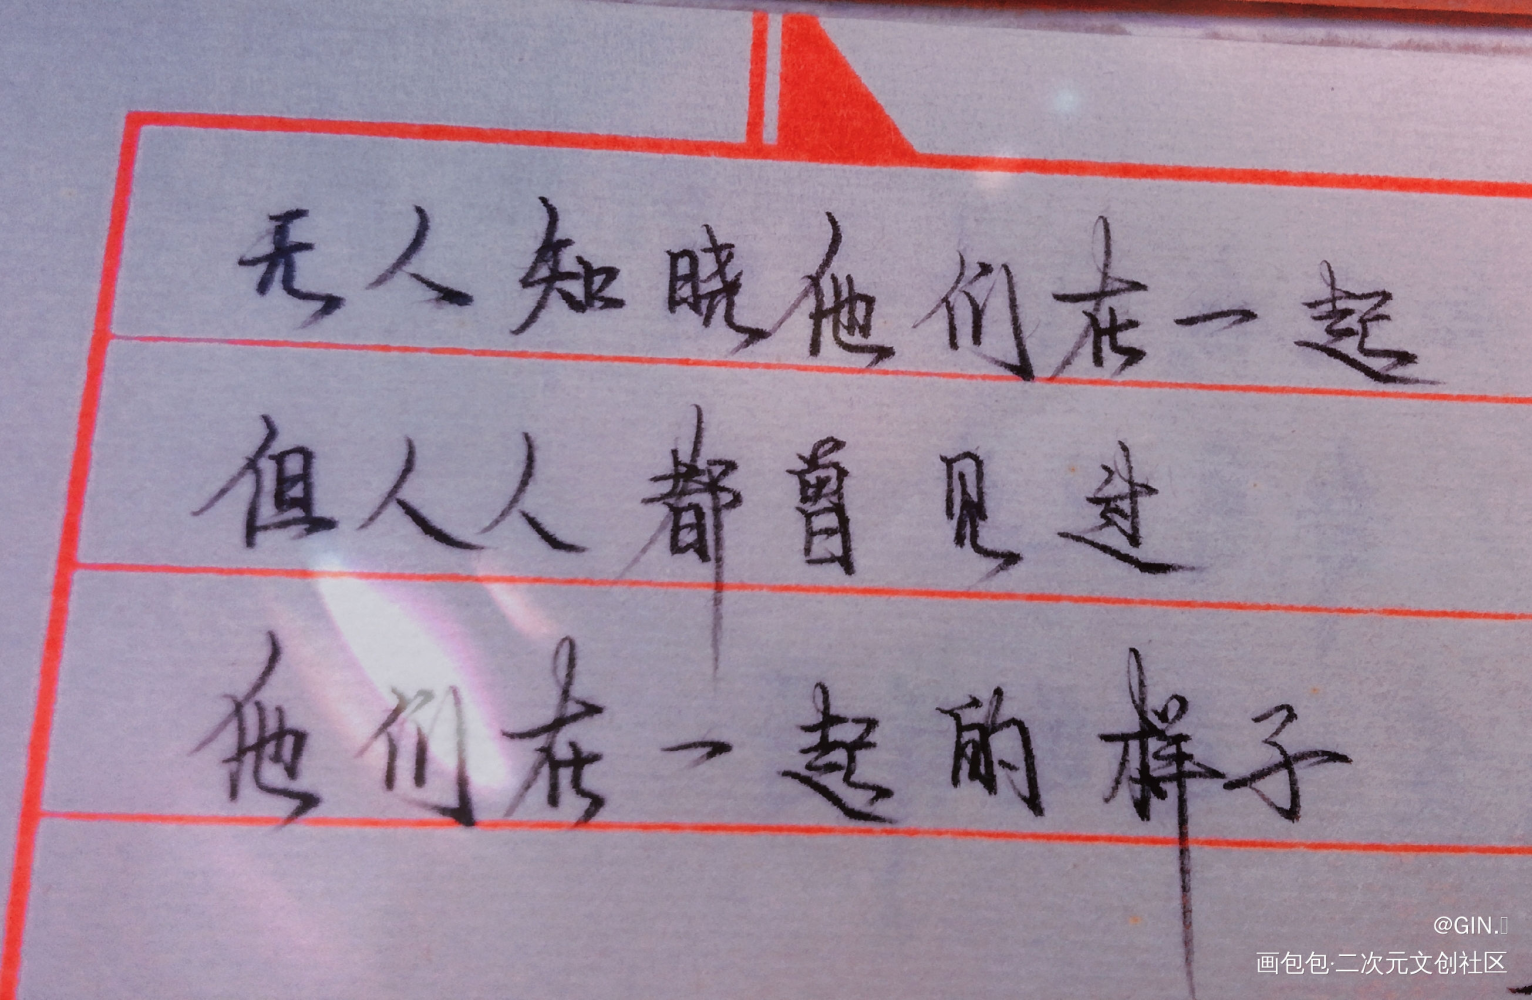 无人知晓他们在一起
但人人都曾见过
他们在一起的样子
@GIN.
画包包·二次元文创社区